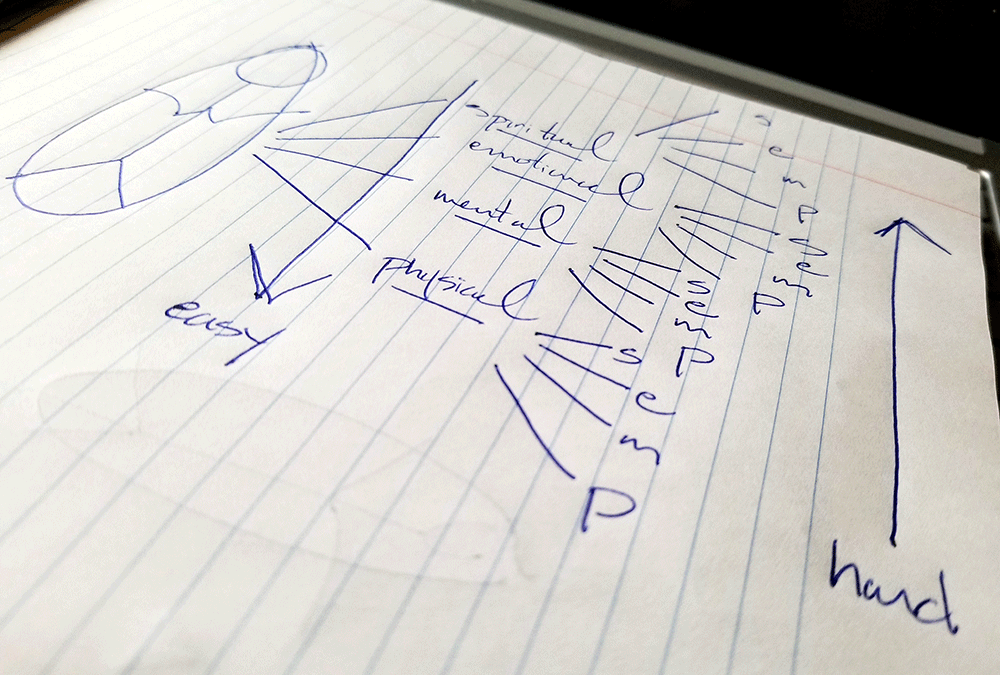 spiritual
s
e
m
p
emotional
s
e
m
p
mental
s
e
m
p
physical
s
e
m
p
easy
hard